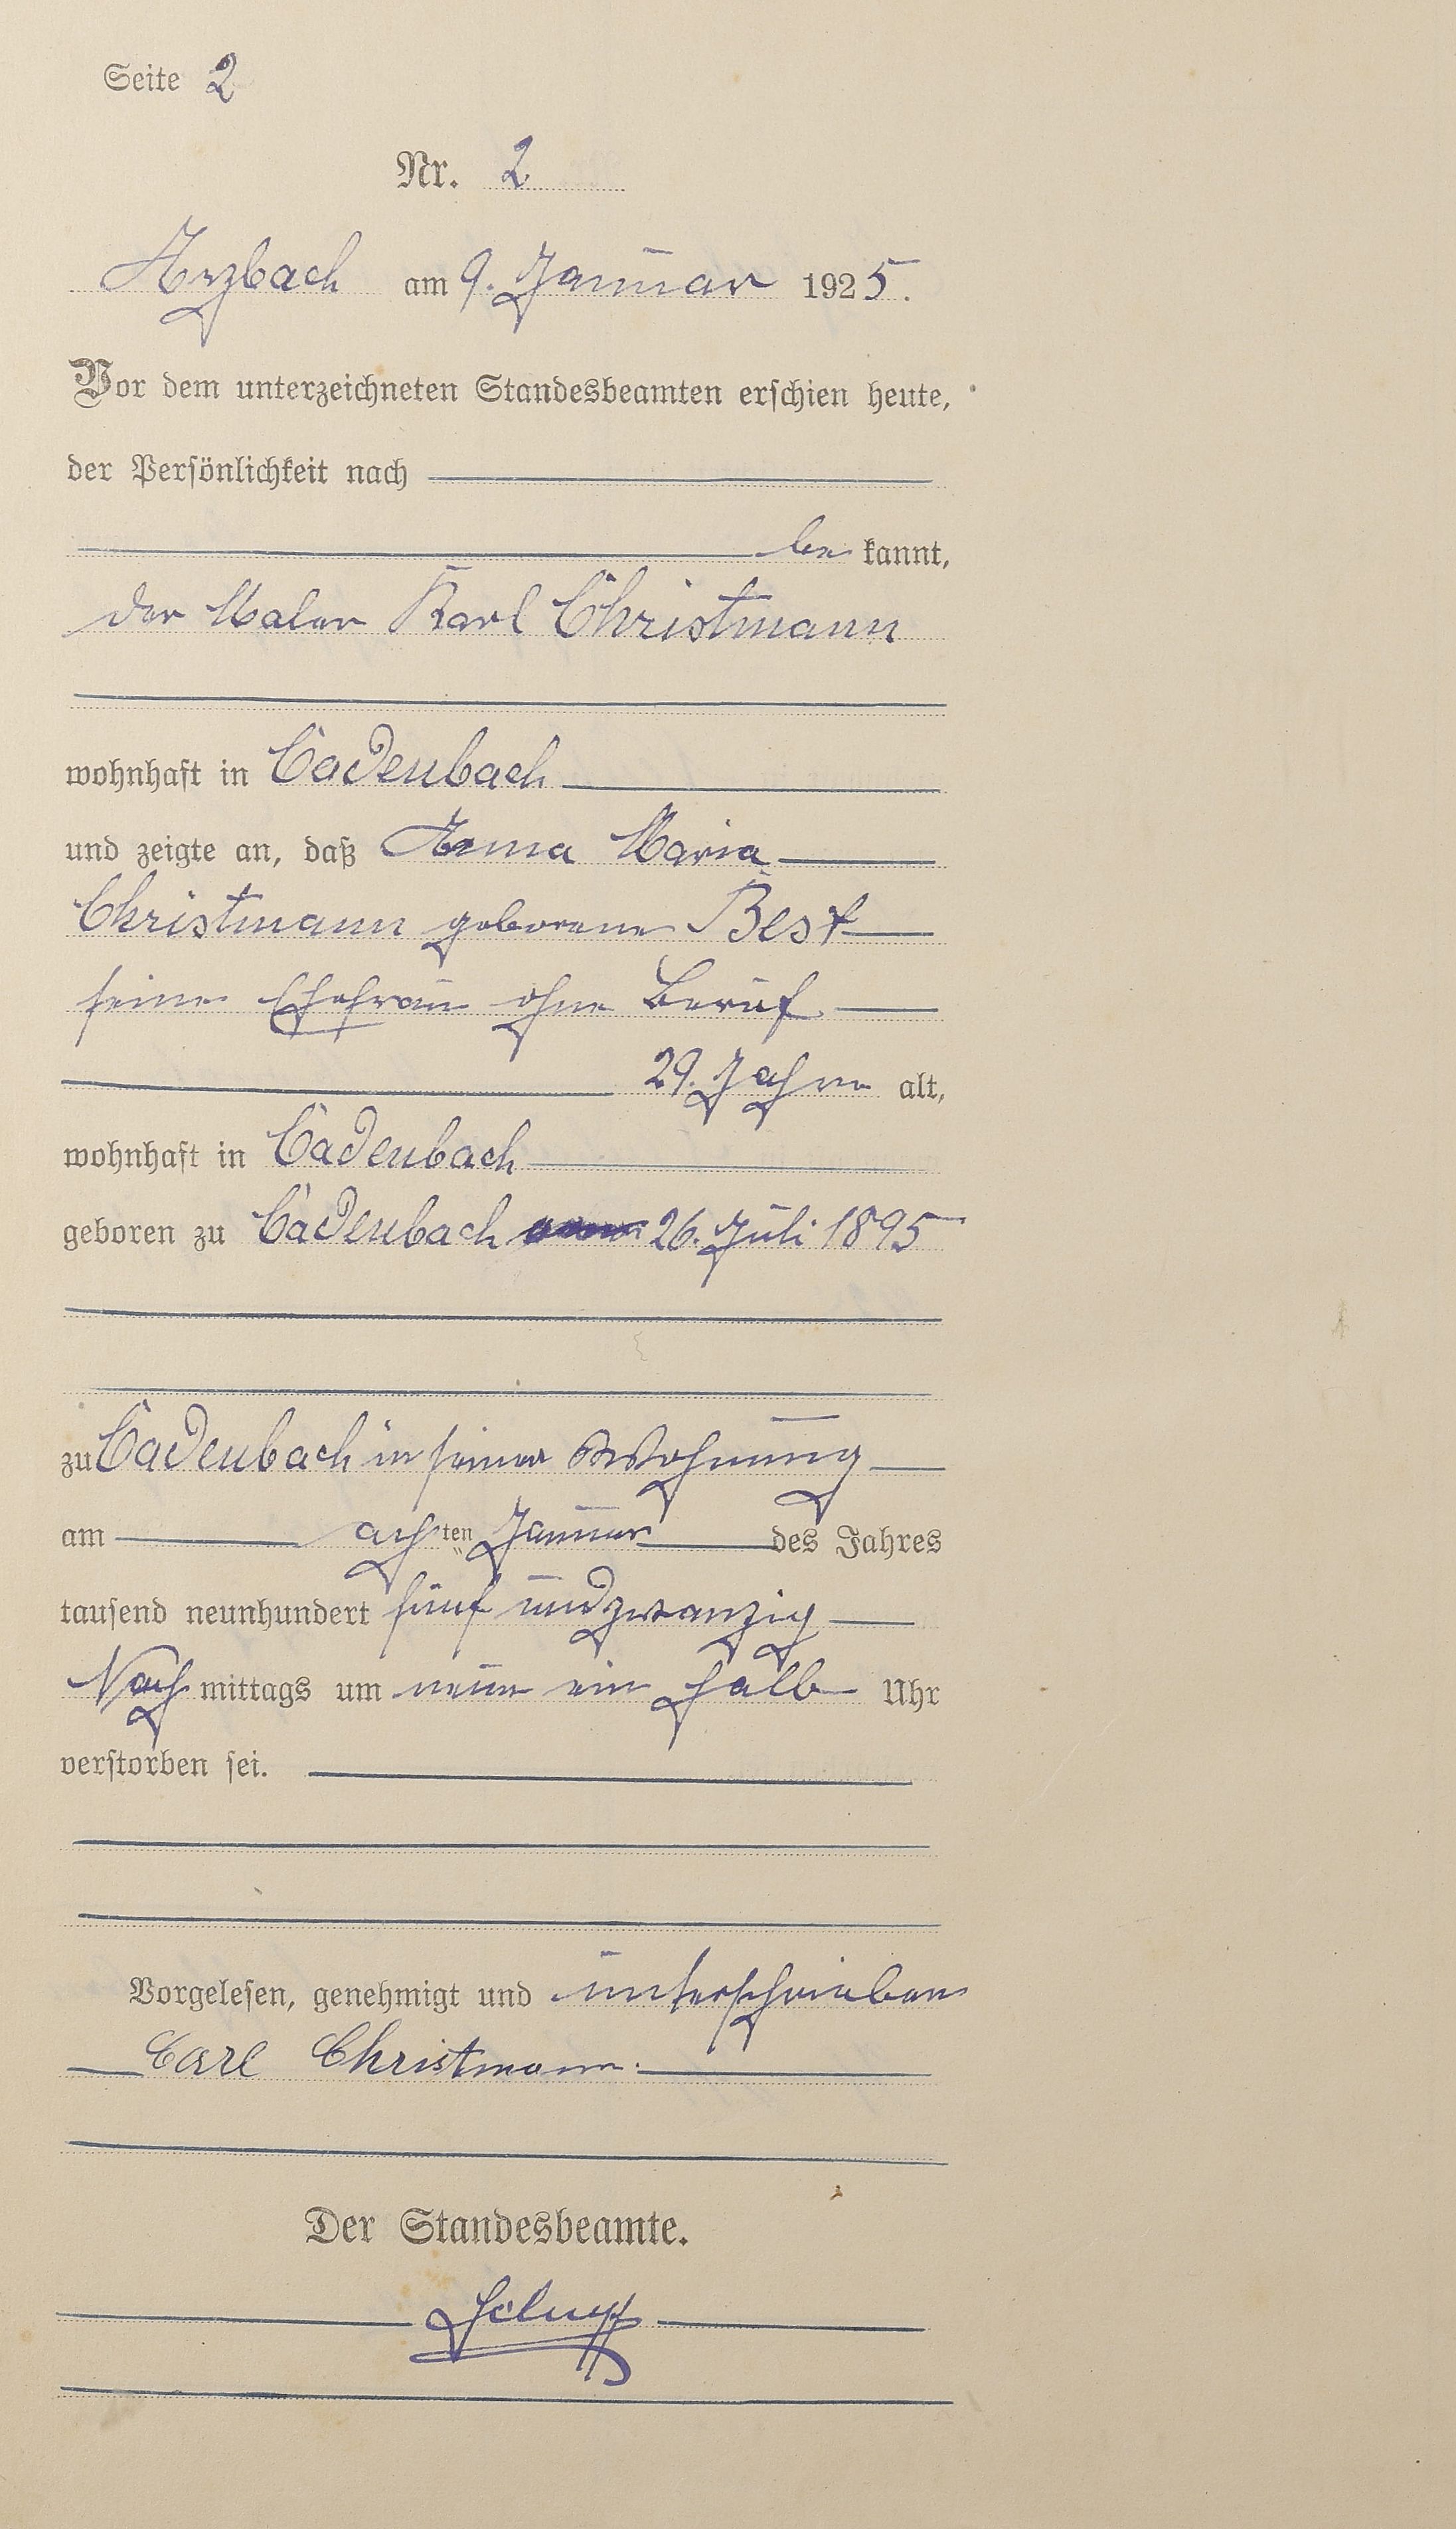 Seite 2
Nr. 2
Arzbach am 9. Januar 1925.
Vor dem unterzeichneten Standesbeamten erschien heute,
der Persönlichkeit nach
be kannt,
der Maler Karl Christmann
wohnhaft in Cadenbach
und zeigte an, daß Anna Maria
Christmann geborene Best
seine Ehefrau ohne Beruf
29. Jahre alt,
wohnhaft in Cadenbach
geboren zu Cadenbach 26. Juli 1895
zu Cadenbach in seiner Wohnung
am achten Januar des Jahres
tausend neunhundert fünf und zwanzig
Nach mittags um neun ein halb Uhr
verstorben sei.
Vorgelesen, genehmigt und unterschrieben
Carl Christmann.
Der Standesbeamte.